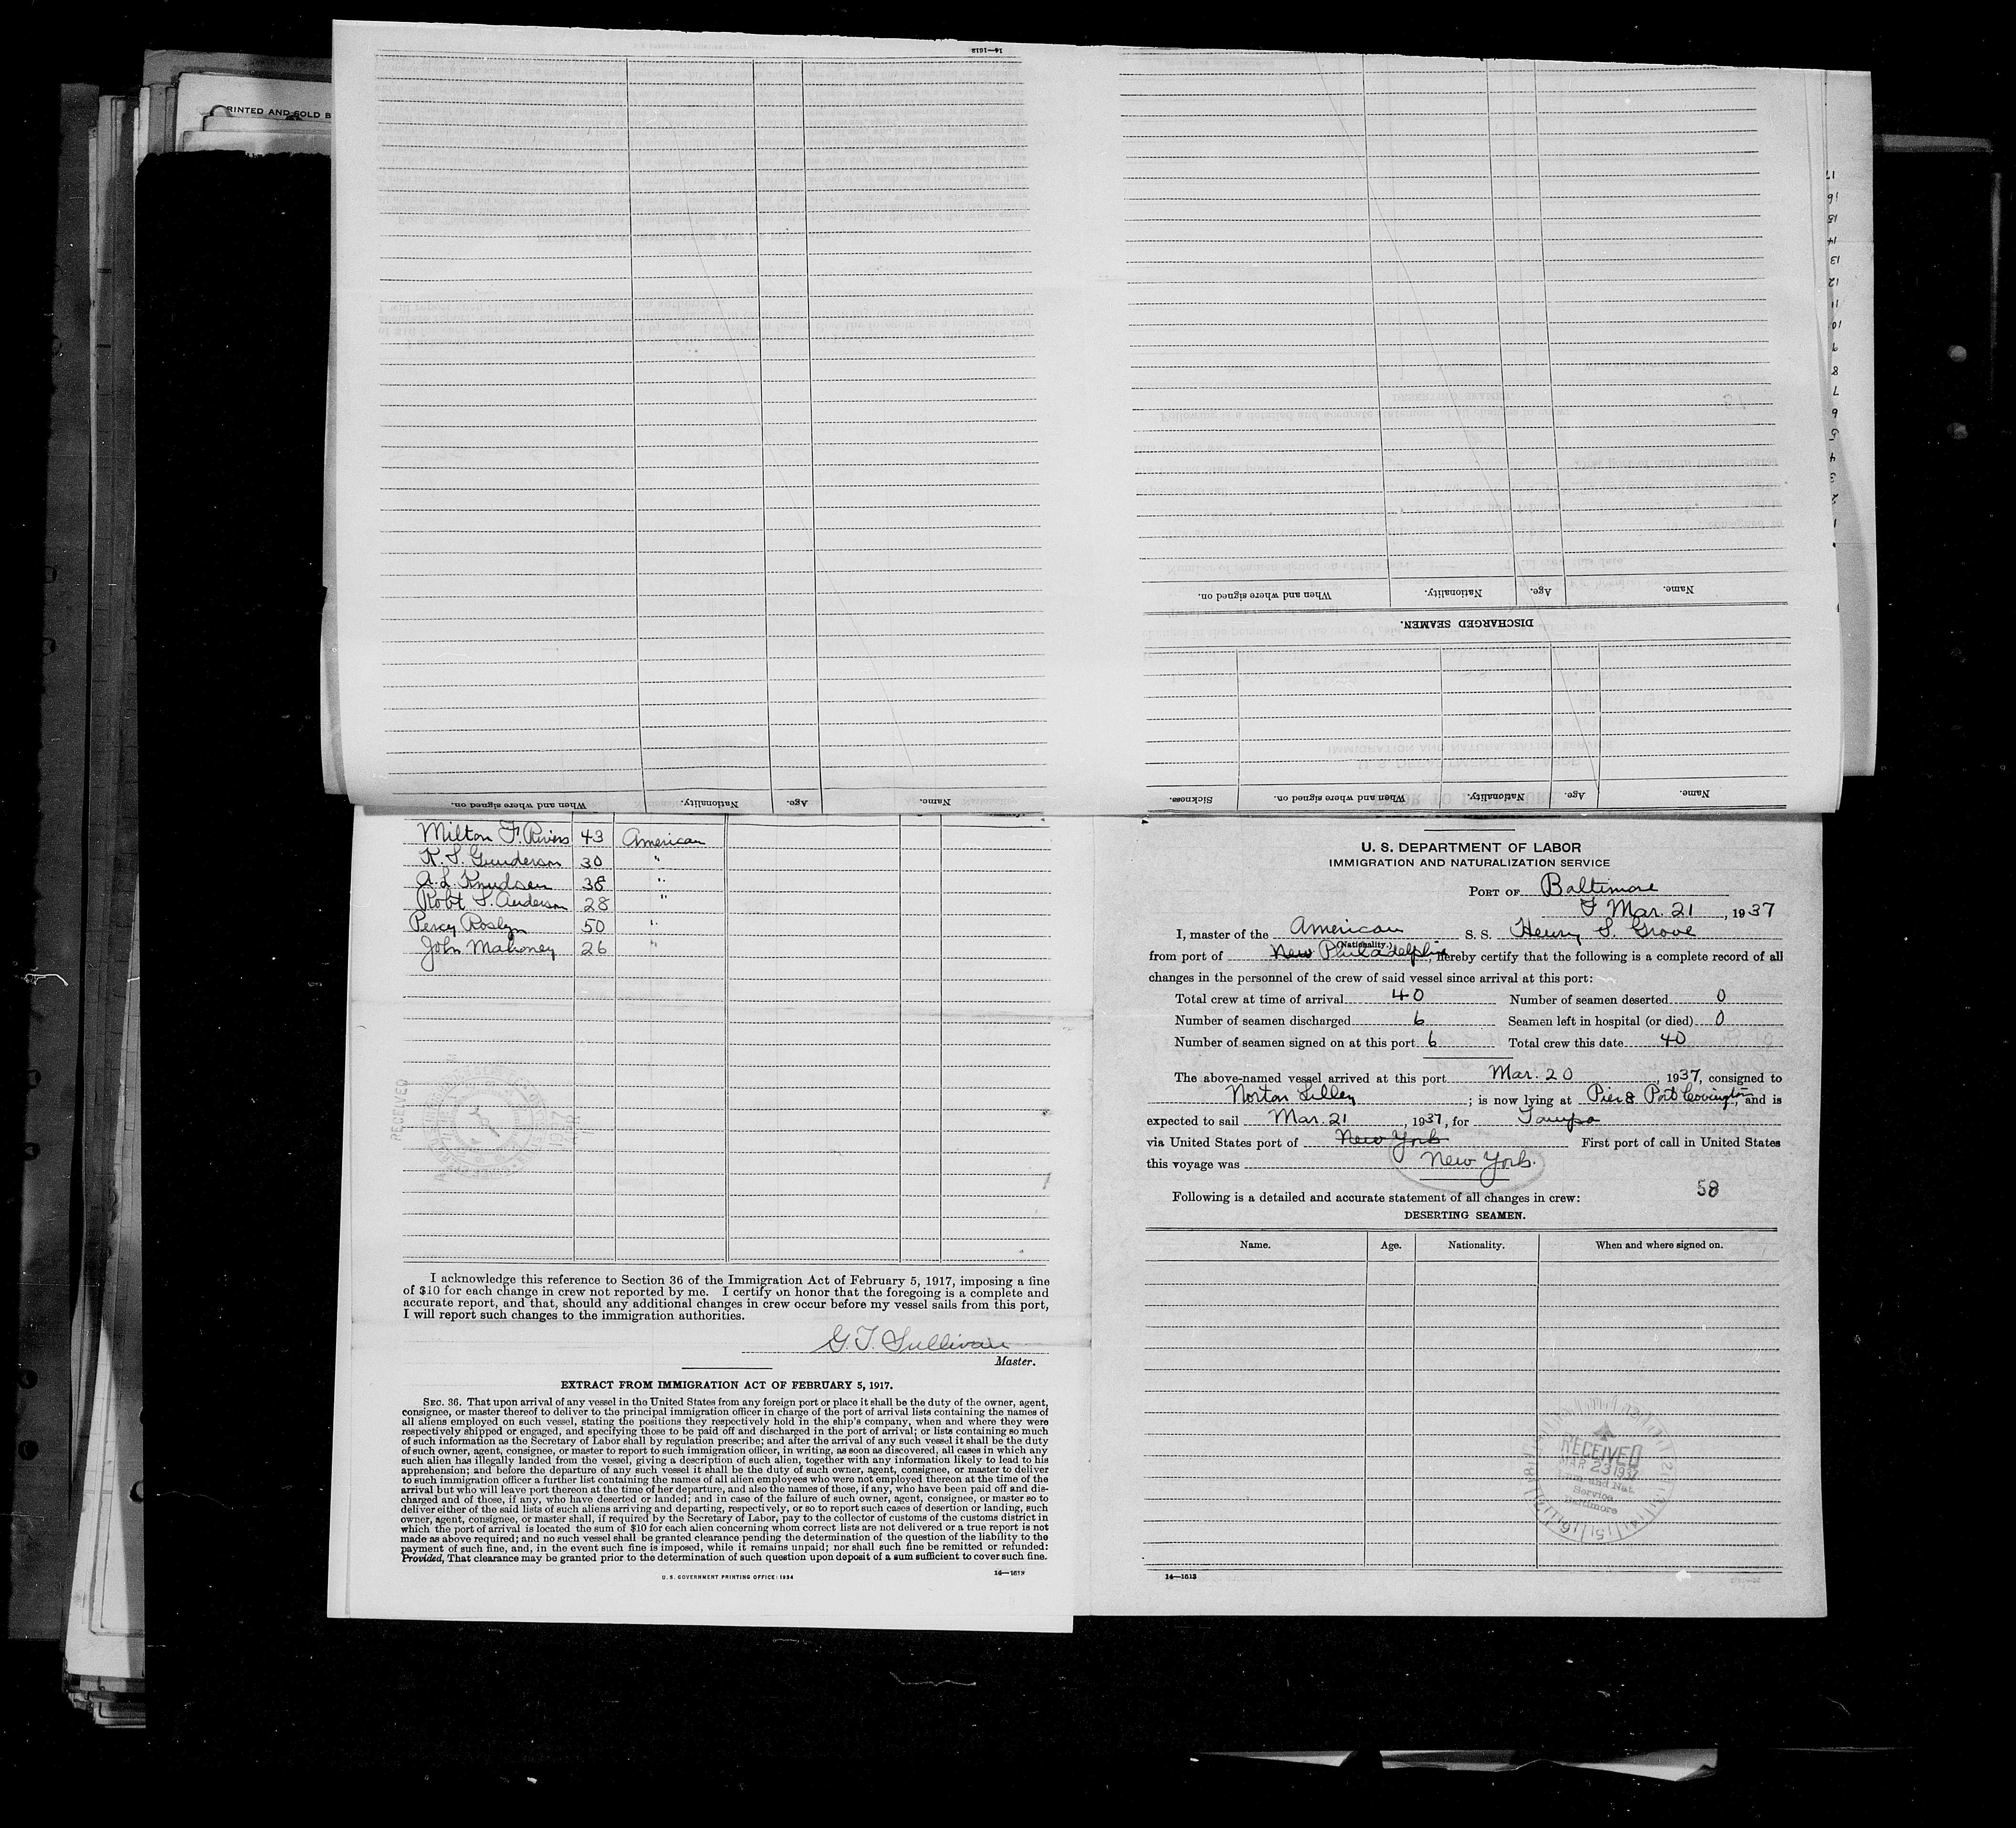 RINTED AND SOLD B
14—1613
17
16
15
14
13
12
11
10
9
8
7
6
5
4
3
2
1
Name.
Age.
Nationality.
When and where signed on.
DISCHARGED SEAMEN.
Name.
Age.
Nationality.
When and where signed on.
Sickness.
Name.
Age.
Nationality.
When and where signed on.
Milton F. Rivers 43 American
K. S. Gunderson 30 "
A. L. Knudsen 38 "
Robt S. Anderson 28 "
Percy Roslyn 50 "
John Mahoney 26 "
RECEIVED
I acknowledge this reference to Section 36 of the Immigration Act of February 5, 1917, imposing a fine
of $10 for each change in crew not reported by me. I certify on honor that the foregoing is a complete and
accurate report, and that, should any additional changes in crew occur before my vessel sails from this port,
I will report such changes to the immigration authorities.
G. T. Sullivan
Master.
EXTRACT FROM IMMIGRATION ACT OF FEBRUARY 5, 1917.
SEC. 36. That upon arrival of any vessel in the United States from any foreign port or place it shall be the duty of the owner, agent,
consignee, or master thereof to deliver to the principal immigration officer in charge of the port of arrival lists containing the names of
all aliens employed on such vessel, stating the positions they respectively hold in the ship's company, when and where they were
respectively shipped or engaged, and specifying those to be paid off and discharged in the port of arrival; or lists containing so much
of such information as the Secretary of Labor shall by regulation prescribe; and after the arrival of any such vessel it shall be the duty
of such owner, agent, consignee, or master to report to such immigration officer, in writing, as soon as discovered, all cases in which any
such alien has illegally landed from the vessel, giving a description of such alien, together with any information likely to lead to his
apprehension; and before the departure of any such vessel it shall be the duty of such owner, agent, consignee, or master to deliver
to such immigration officer a further list containing the names of all alien employees who were not employed thereon at the time of the
arrival but who will leave port thereon at the time of her departure, and also the names of those, if any, who have been paid off and dis-
charged and of those, if any, who have deserted or landed; and in case of the failure of such owner, agent, consignee, or master so to
deliver either of the said lists of such aliens arriving and departing, respectively, or so to report such cases of desertion or landing, such
owner, agent, consignee, or master shall, if required by the Secretary of Labor, pay to the collector of customs of the customs district in
which the port of arrival is located the sum of $10 for each alien concerning whom correct lists are not delivered or a true report is not
made as above required; and no such vessel shall be granted clearance pending the determination of the question of the liability to the
payment of such fine, and, in the event such fine is imposed, while it remains unpaid; nor shall such fine be remitted or refunded:
Provided, That clearance may be granted prior to the determination of such question upon deposit of a sum sufficient to cover such fine.
U. S. GOVERNMENT PRINTING OFFICE: 1934
14—1613
U. S. DEPARTMENT OF LABOR
IMMIGRATION AND NATURALIZATION SERVICE
PORT OF Baltimore
Mar. 21, 1937
I, master of the American S. S. Henry S. Grove
(Nationality.)
from port of New Philadelphia, hereby certify that the following is a complete record of all
changes in the personnel of the crew of said vessel since arrival at this port:
Total crew at time of arrival 40 Number of seamen deserted 0
Number of seamen discharged 6 Seamen left in hospital (or died) 0
Number of seamen signed on at this port 6 Total crew this date 40
The above-named vessel arrived at this port Mar. 20, 1937, consigned to
Norton Lilley; is now lying at Pier 8 Port Covington, and is
expected to sail Mar. 21, 1937, for Tampa
via United States port of New York First port of call in United States
this voyage was New York.
58
Following is a detailed and accurate statement of all changes in crew:
DESERTING SEAMEN.
Name. Age. Nationality. When and where signed on.
RECEIVED
MAR 23 1937
Imm. and Nat.
Service
Baltimore
14—1613